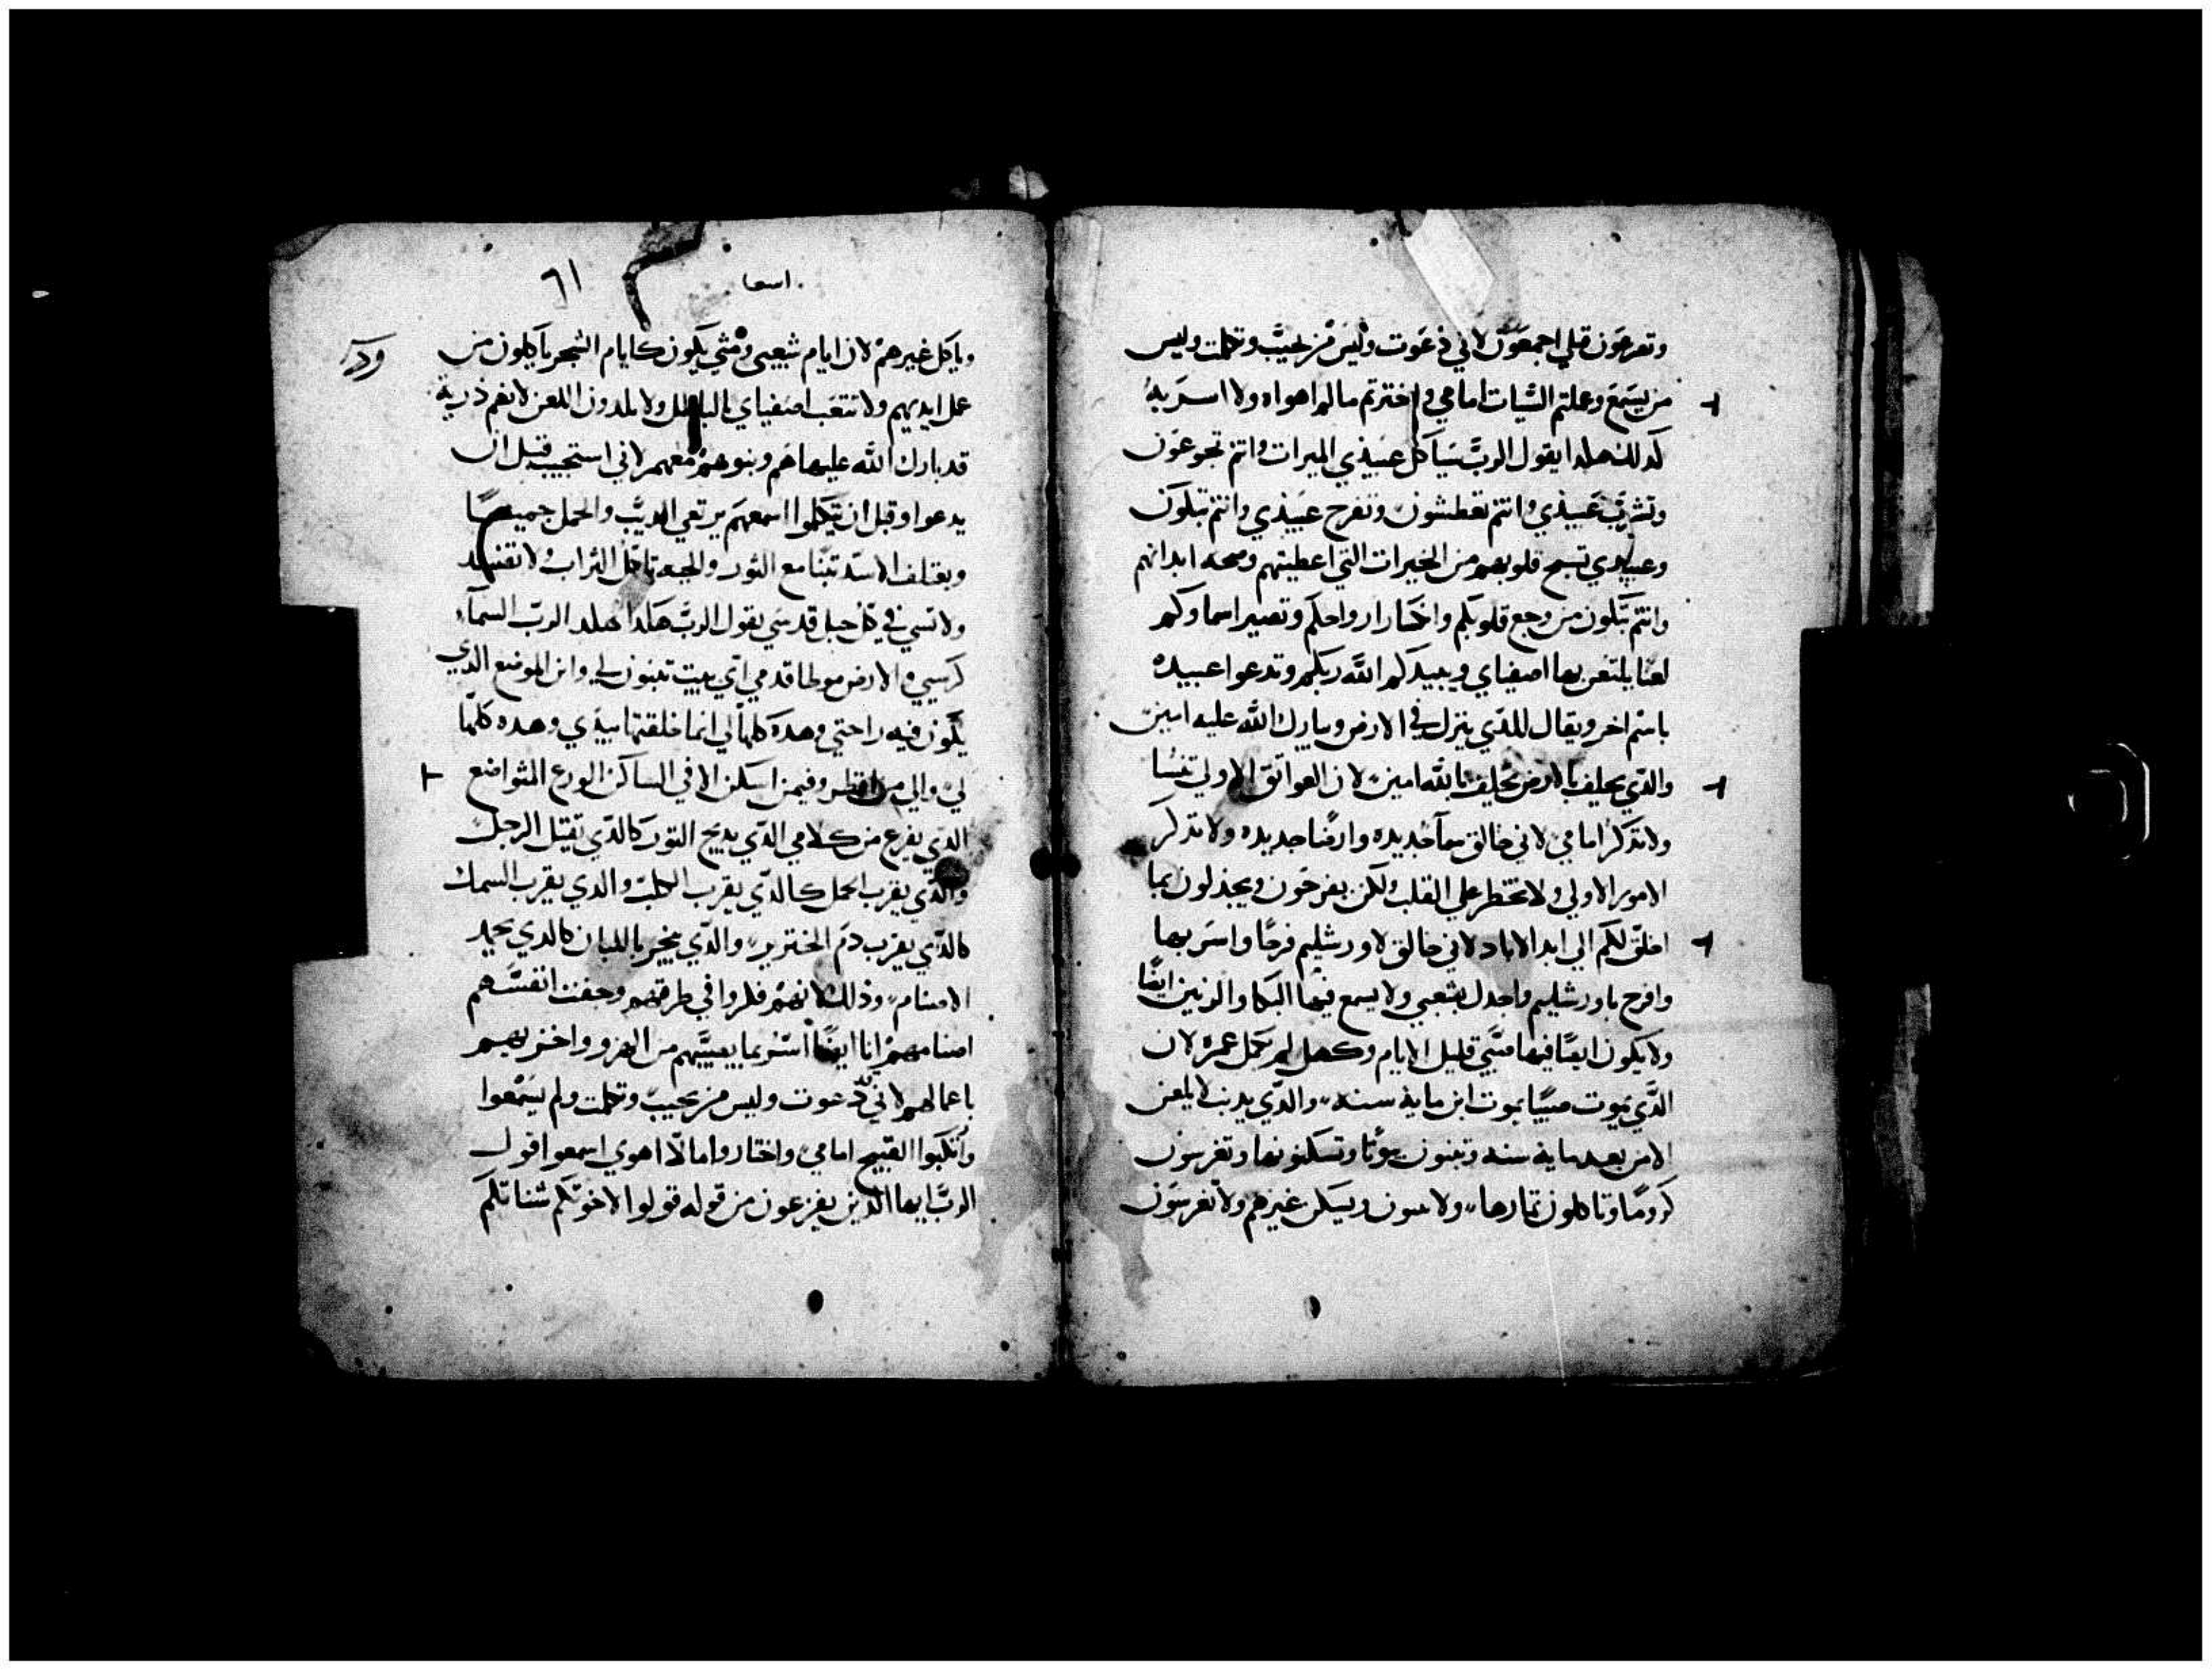 وتعرعون قبلي اجمعون لاني دعوت وليس من يجيب وتكلمت وليس
من يسمع وعملتم السيات امامي واخترتم ما لم اهواه ولا اسر به
لدلك هكدا يقول الرب سياكل عبيدي الميرات وانتم تجوعون
وتشرب عبيدي وانتم تعطشون وتفرح عبيدي وانتم تبكون
وعبيدي تسبح قلوبهم من الخيرات التي اعطيتهم وصحه ابدانهم
وانتم تبكون من وجع قلوبكم وانكسار ارواحكم وتصير اسماوكم
لعنا يلتعن بها اصفياي ويبيدكم الله ربكم وتدعوا عبيده
باسم اخر ويقال للدي ينزل في الارض وبارك الله عليه امين
والدي يحلف بالارض يحلف بالله امين لان العوايق الاولي تنسا
ولا تدكر امامي لاني خالق سما جديده وارضا جديده ولا تدكر
الامور الاولي ولا تخطر علي القلب ولكن يفرحون ويجدلون بما
اخلق لكم الي ابد الاباد لاني خالق لاورشليم فرحا واسر بها
وافرح باورشليم واجدل بشعبي ولا يسمع فيها البكا والرنين ايضا
ولا يكون ايضا فيها صبي قليل الايام وكهل لم يكمل عمره لان
الدي يموت صبيا يموت ابن ماية سنه والدي يدنب لا يلعن
الا من بعد ماية سنه وتبنون بيوتا وتسكنونها وتغرسون
كروما وتاكلون تمارها ولا يبنون ويسكن غيرهم ولا تغرسون
اسعيا
٦١
وياكل غيرهم لان ايام شعبي ومثي يكون كايام الشجر ياكلون من
عمل ايديهم ولا تتعب اصفياي بالباطل ولا يلدون اللعن لانهم ذرية
قد بارك الله عليها هم وبنوهم معهم لاني استجيب قبل ان
يدعوا وقبل ان يتكلموا اسمعهم يرتعي الديب والحمل جميعا
ويعتلف الاسد تبنا مع الثور والحيه تاكل التراب ولا تفسد
ولا تسي في كل جبل قدسي يقول الرب هكدا الرب السماء
كرسيي والارض موطا قدمي اي بيت تبنون لي واين الموضع الدي
يكون فيه راحتي وهده كلها لي انما خلقتها بيدي وهده كلها
لي والي من انظر وفيمن اسكن الا في الساكن الورع المتواضع
الدي يفزع من كلامي الدي يدبح التور كالدي يقتل الرجل
والدي يقرب الحمل كالدي يقرب الكلب والدي يقرب السمك
كالدي يقرب دم الخنزير والدي يبخر باللبان كالدي يحمد
الاصنام وذلك لانهم فكروا في طرقهم وحفت انفسهم
اصنامهم انا ايضا اسر بما يعيبهم من الهزو واخزيهم
باعمالهم لاني دعوت وليس من يجيب وتكلمت ولم يسمعوا
وارتكبوا القبيح امامي واختاروا ما لا اهوي اسمعوا قول
الرب ايها الدين يفزعون من قوله قولوا لاخوتكم شناتكم